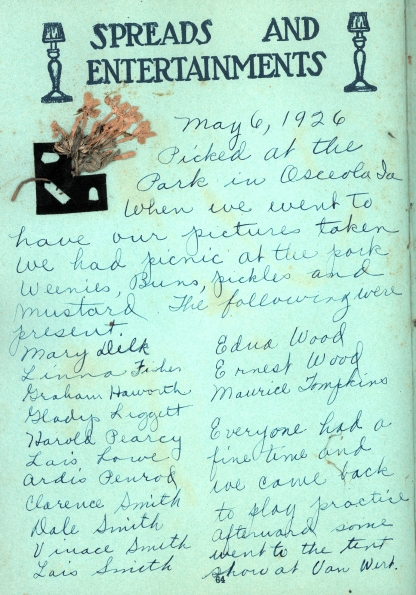 SPREADS AND
ENTERTAINMENTS
May 6, 1926
Picked at the
Park in Osceola Ia
When we went to
have our pictures taken
We had picnic at the park
Weenies, Buns, pickles and
mustard The following were
present.
Mary Delk
Linna Fisher
Graham Haworth
Gladys Liggett
Harold Pearcy
Lois Lowe
Ardis Penrod
Clarence Smith
Dale Smith
Smith
Lois Smith
Edna Wood
Ernest Wood
Maurice Tompkins
Everyone had a
fine time and
we came back
to play practice
afterward some
went to the tent
show at Van Wert.
64